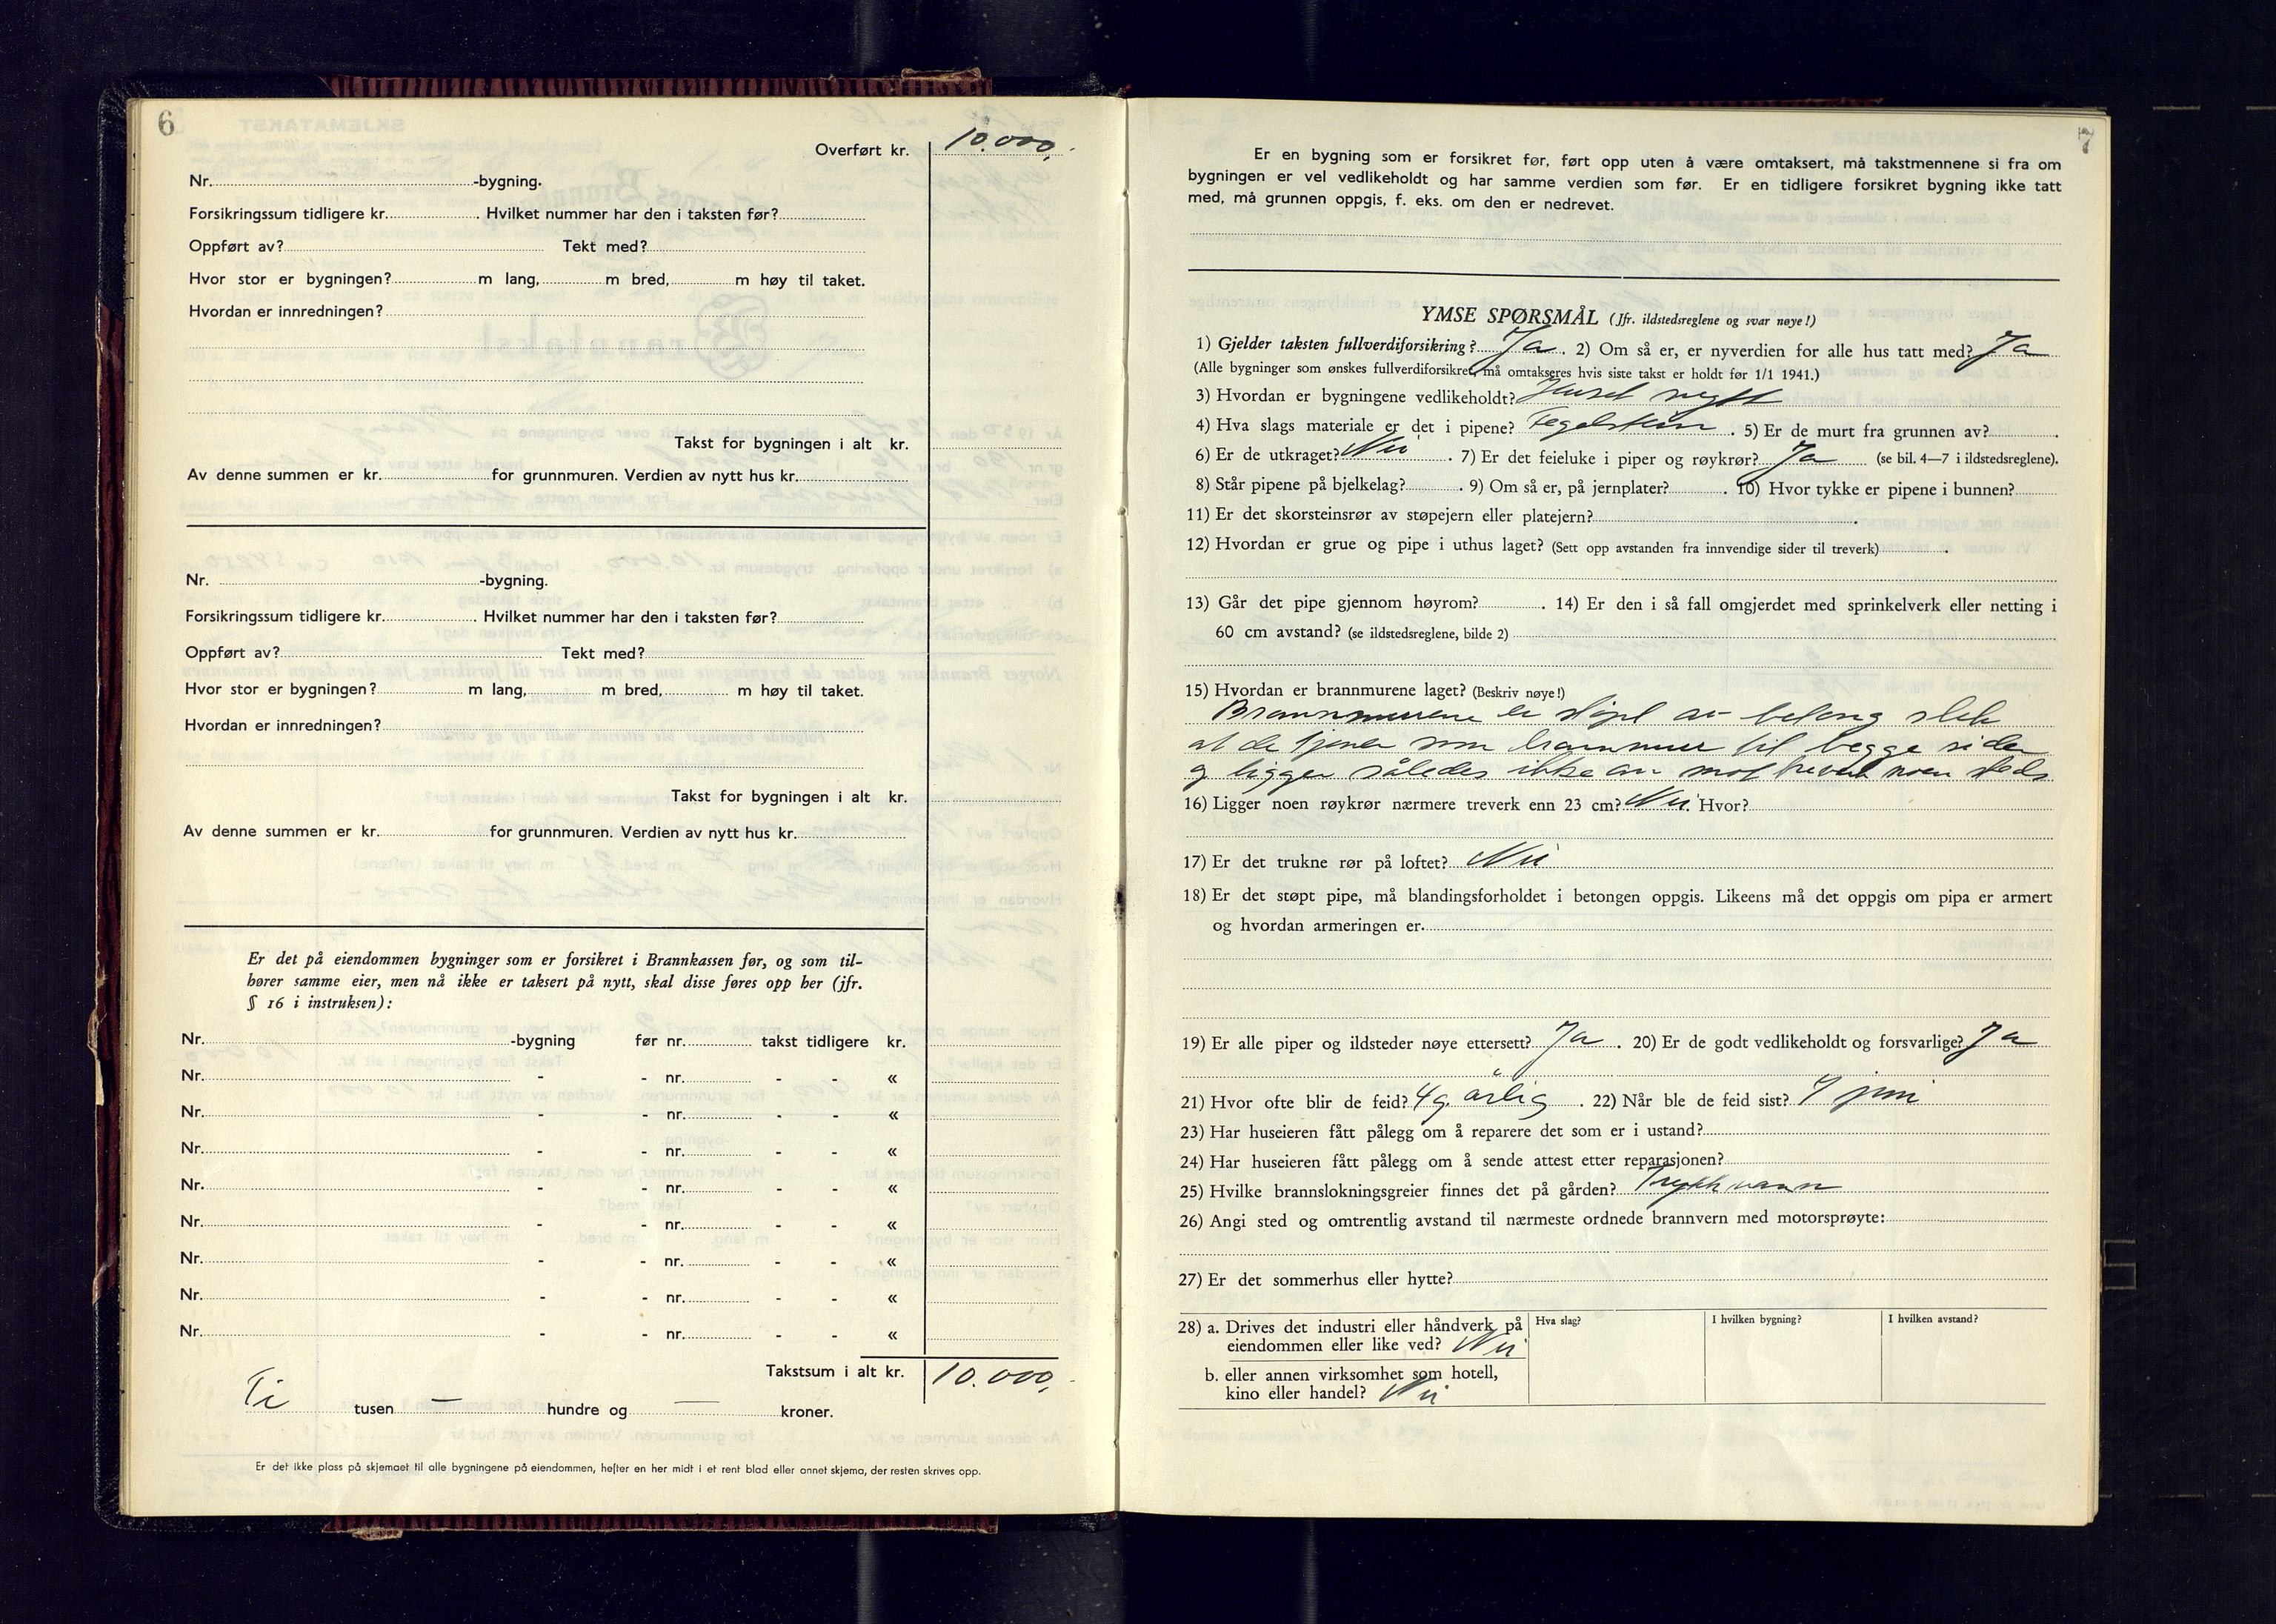 6
Overført kr. 10.000,-
Nr. -bygning.
Forsikringssum tidligere kr. . Hvilket nummer har den i taksten før?
Oppført av? Tekt med?
Hvor stor er bygningen? m lang, m bred, m høy til taket.
Hvordan er innredningen?
Takst for bygningen i alt kr.
Av denne summen er kr. for grunnmuren. Verdien av nytt hus kr.
Nr. -bygning.
Forsikringssum tidligere kr. . Hvilket nummer har den i taksten før?
Oppført av? Tekt med?
Hvor stor er bygningen? m lang, m bred, m høy til taket.
Hvordan er innredningen?
Takst for bygningen i alt kr.
Av denne summen er kr. for grunnmuren. Verdien av nytt hus kr.
Er det på eiendommen bygninger som er forsikret i Brannkassen før, og som til-
hører samme eier, men nå ikke er taksert på nytt, skal disse føres opp her (jfr.
§ 16 i instruksen):
Nr. -bygning før nr. takst tidligere kr.
Nr. - - nr. - - «
Nr. - - nr. - - «
Nr. - - nr. - - «
Nr. - - nr. - - «
Nr. - - nr. - - «
Nr. - - nr. - - «
Nr. - - nr. - - «
Nr. - - nr. - - «
Takstsum i alt kr. 10.000,-
Ti tusen — hundre og — kroner.
Er det ikke plass på skjemaet til alle bygningene på eiendommen, hefter en her midt i et rent blad eller annet skjema, der resten skrives opp.
7
Er en bygning som er forsikret før, ført opp uten å være omtaksert, må takstmennene si fra om
bygningen er vel vedlikeholdt og har samme verdien som før. Er en tidligere forsikret bygning ikke tatt
med, må grunnen oppgis, f. eks. om den er nedrevet.
YMSE SPØRSMÅL (Jfr. ildstedsreglene og svar nøye!)
1) Gjelder taksten fullverdiforsikring? Ja . 2) Om så er, er nyverdien for alle hus tatt med? Ja
(Alle bygninger som ønskes fullverdiforsikret, må omtakseres hvis siste takst er holdt før 1/1 1941.)
3) Hvordan er bygningene vedlikeholdt? Huset nytt
4) Hva slags materiale er det i pipene? Tegelstein . 5) Er de murt fra grunnen av? .
6) Er de utkraget? Nei . 7) Er det feieluke i piper og røykrør? Ja (se bil. 4—7 i ildstedsreglene).
8) Står pipene på bjelkelag? . 9) Om så er, på jernplater? . 10) Hvor tykke er pipene i bunnen?
11) Er det skorsteinsrør av støpejern eller platejern? .
12) Hvordan er grue og pipe i uthus laget? (Sett opp avstanden fra innvendige sider til treverk) .
13) Går det pipe gjennom høyrom? . 14) Er den i så fall omgjerdet med sprinkelverk eller netting i
60 cm avstand? (se ildstedsreglene, bilde 2)
15) Hvordan er brannmurene laget? (Beskriv nøye!)
Brannmurene er støpt av betong slik
at de tjener som brannmur til begge sider
og ligger således ikke an mot treverk noen steds
16) Ligger noen røykrør nærmere treverk enn 23 cm? Nei. Hvor?
17) Er det trukne rør på loftet? Nei
18) Er det støpt pipe, må blandingsforholdet i betongen oppgis. Likeens må det oppgis om pipa er armert
og hvordan armeringen er.
19) Er alle piper og ildsteder nøye ettersett? Ja . 20) Er de godt vedlikeholdt og forsvarlige? Ja
21) Hvor ofte blir de feid? 4 g. årlig . 22) Når ble de feid sist? 7 juni
23) Har huseieren fått pålegg om å reparere det som er i ustand?
24) Har huseieren fått pålegg om å sende attest etter reparasjonen?
25) Hvilke brannslokningsgreier finnes det på gården? Trykkvann
26) Angi sted og omtrentlig avstand til nærmeste ordnede brannvern med motorsprøyte:
27) Er det sommerhus eller hytte?
28) a. Drives det industri eller håndverk på Hva slag? I hvilken bygning? I hvilken avstand?
eiendommen eller like ved? Nei
b. eller annen virksomhet som hotell,
kino eller handel? Nei